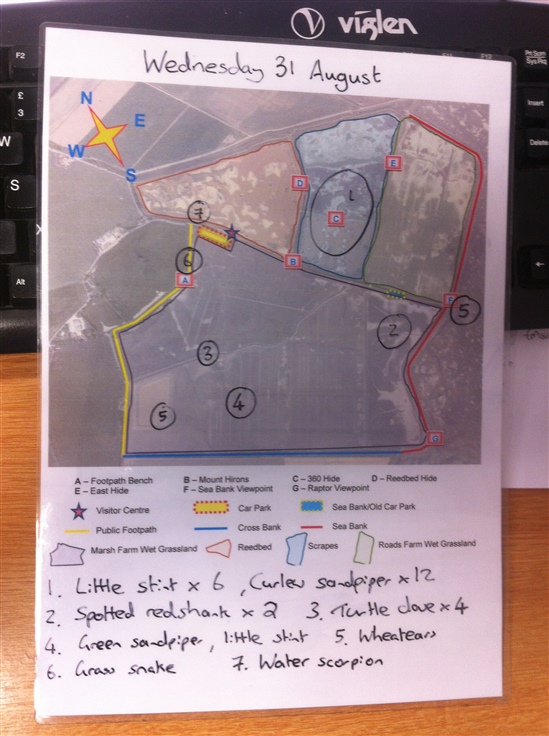 viglen
F2
F12
Prt Scrn
Sys Rq
£
3
Insert
W
Delete
S
Alt
Wednesday 31 August
N
E
W
S
7
1
D
E
C
6
A
B
2
F
5
3
5
4
G
A – Footpath Bench B – Mount Hirons C – 360 Hide D – Reedbed Hide
E – East Hide F – Sea Bank Viewpoint G – Raptor Viewpoint
Visitor Centre Car Park Sea Bank/Old Car Park
Public Footpath Cross Bank Sea Bank
Marsh Farm Wet Grassland Reedbed Scrapes Roads Farm Wet Grassland
1. Little stint x 6, Curlew sandpiper x 12
2. Spotted redshank x 2 3. Turtle dove x 4
4. Green sandpiper, little stint 5. Wheatears
6. Grass snake 7. Water scorpion